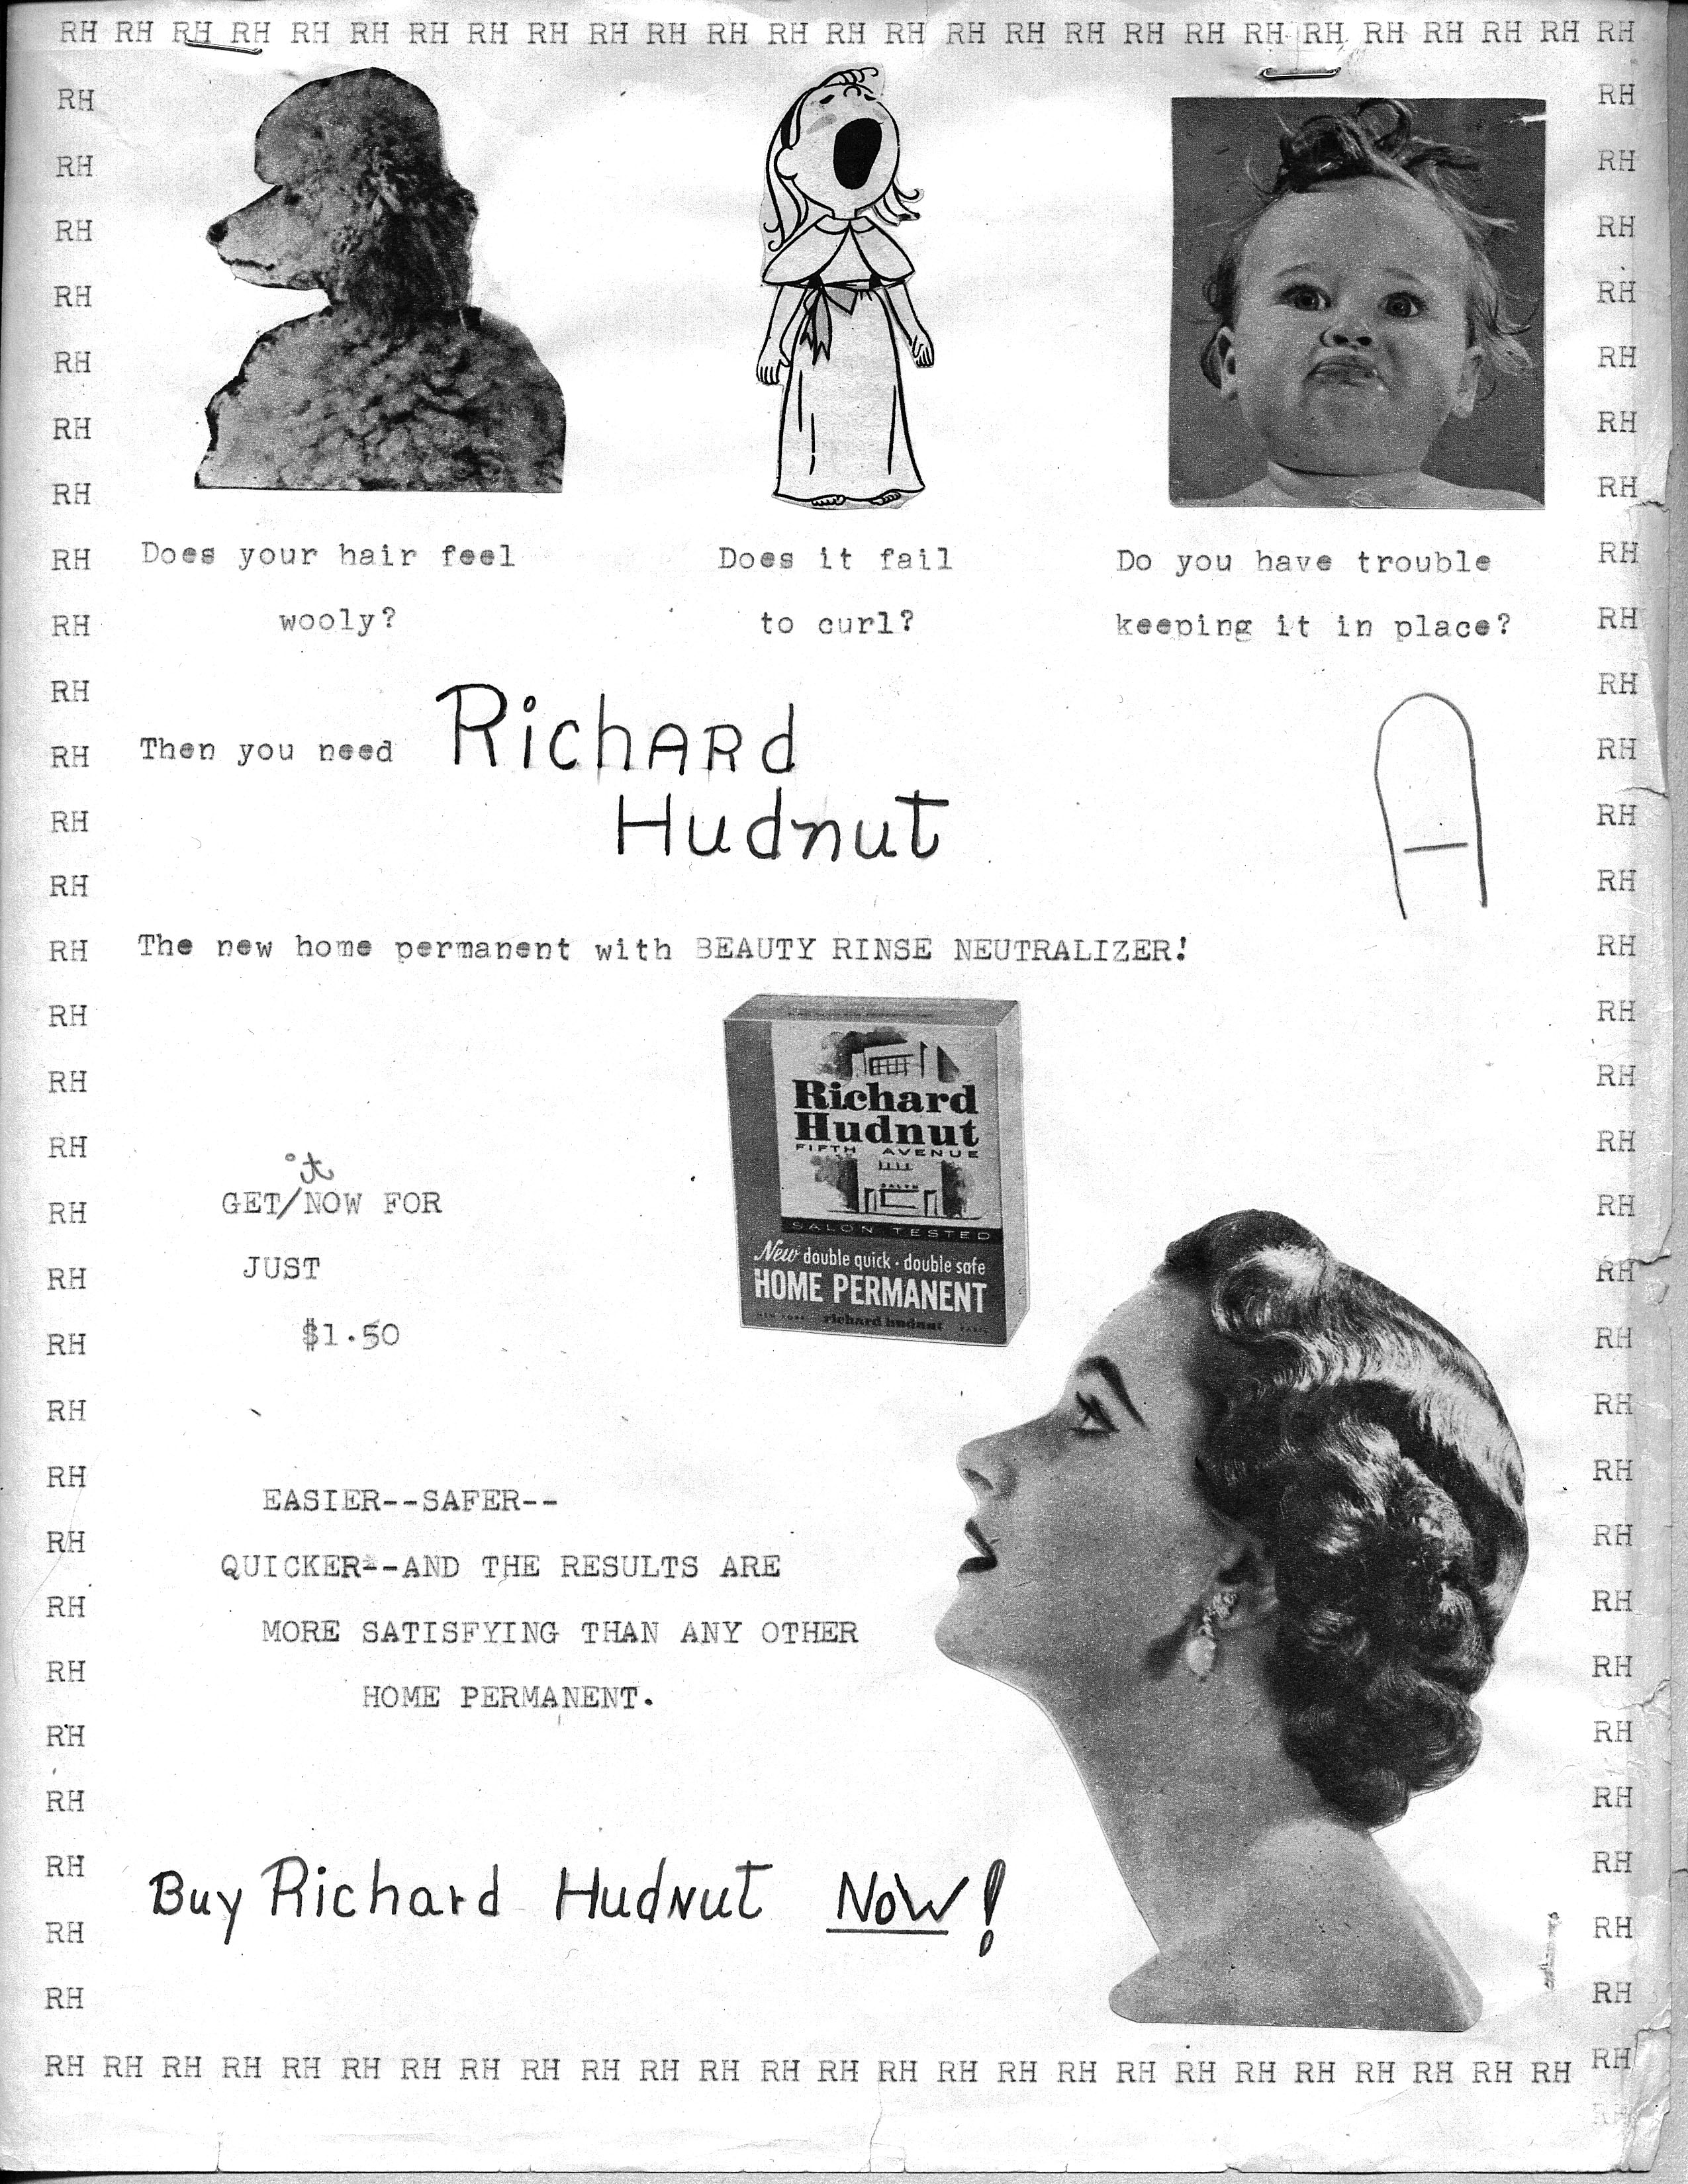 RH RH RH RH RH RH RH RH RH RH RH RH RH RH RH RH RH RH RH RH RH RH RH RH RH RH RH
RH RH
RH RH
RH RH
RH RH
RH RH
RH RH
RH RH
RH Does your hair feel Does it fail Do you have trouble RH
RH wooly? to curl? keeping it in place? RH
RH RH
RH Then you need Richard RH
RH Hudnut RH
RH RH
RH The new home permanent with BEAUTY RINSE NEUTRALIZER! RH
RH RH
RH Richard RH
RH Hudnut RH
FIFTH AVENUE
it
RH GET/NOW FOR RH
SALON TESTED
RH JUST New double quick · double safe RH
HOME PERMANENT
richard hudnut
RH $1.50 RH
RH RH
RH EASIER--SAFER-- RH
RH QUICKER--AND THE RESULTS ARE RH
RH MORE SATISFYING THAN ANY OTHER RH
RH HOME PERMANENT. RH
RH RH
RH RH
RH Buy Richard Hudnut Now! RH
RH RH
RH RH
RH RH RH RH RH RH RH RH RH RH RH RH RH RH RH RH RH RH RH RH RH RH RH RH RH RH RH
RH